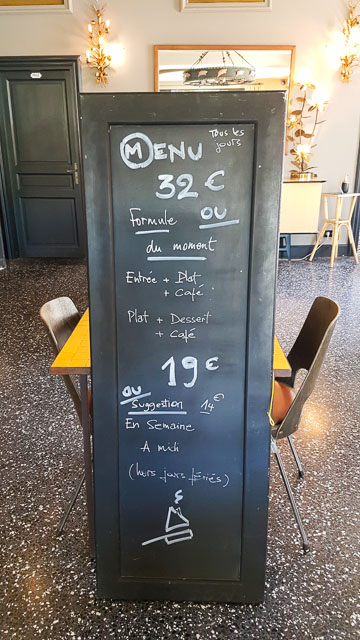 MENU Tous les jours
32 €
Formule OU
du moment
Entrée + Plat
+ Café
Plat + Dessert
+ Café
19 €
OU
Suggestion 14 €
En Semaine
A midi
(hors jours fériés)